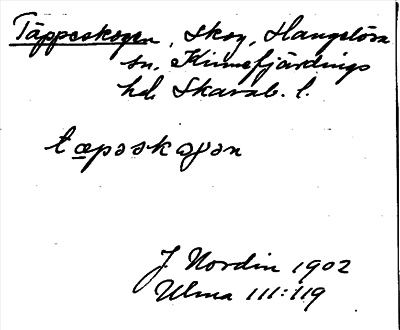 Täppeskogen, Skog, Hangelösa
sn. Kinnefjärdings
hd. Skarab. l.
tæpəskoɣən
J. Nordin 1902
Ulma 111:119